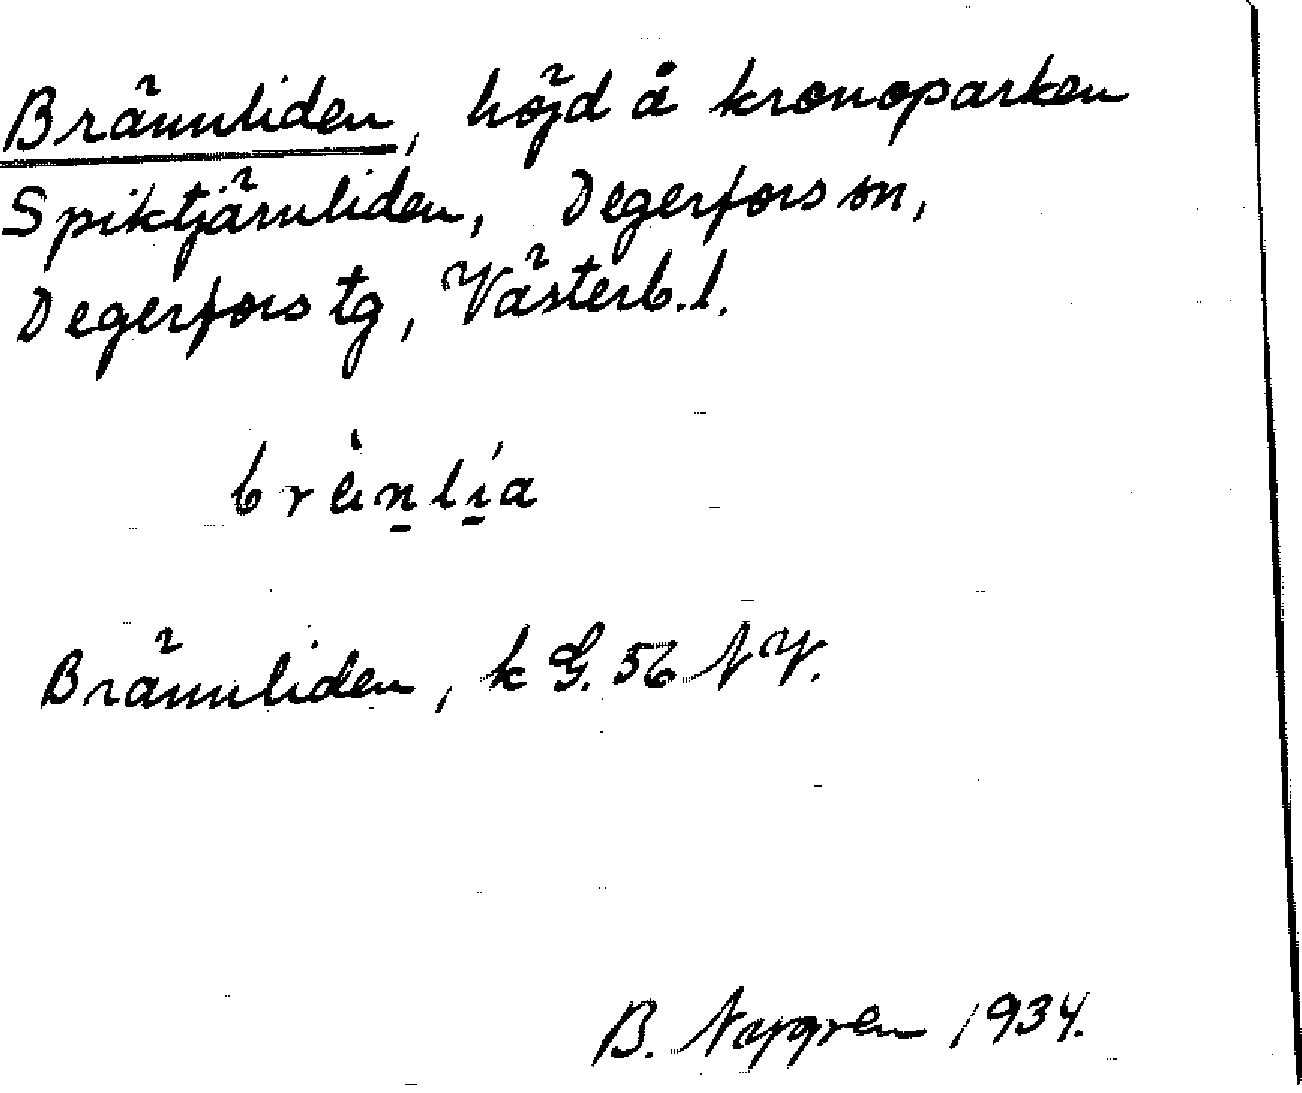 Brännliden, höjd å kronoparken
Spiktjärnliden, Degerfors sn,
Degerfors tg, Västerb. l.
bräṉli̱a
Brännliden, k G. 56 NV.
B. Nygren 1934.